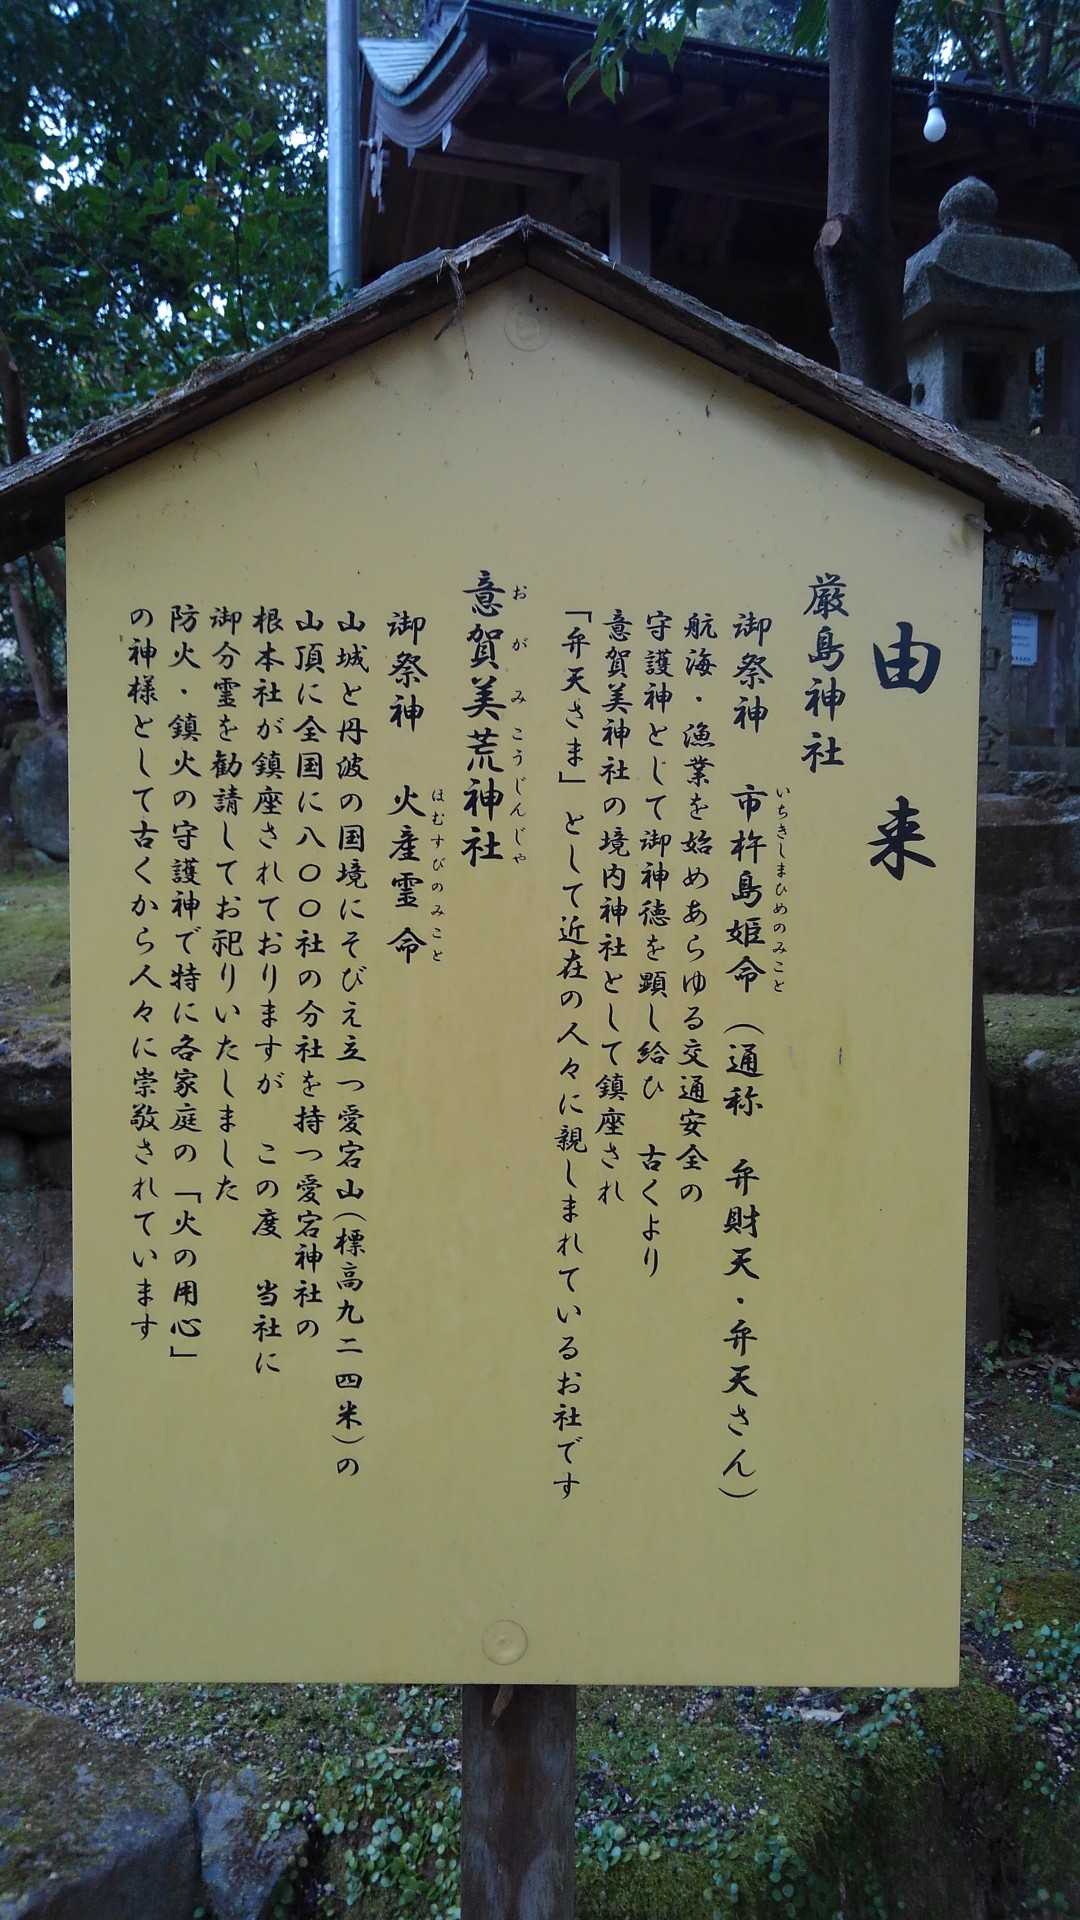 由来
厳島神社
御祭神　市杵島姫命（通称　弁財天・弁天さん）
いちきしまひめのみこと
航海・漁業を始めあらゆる交通安全の
守護神として御神徳を顕し給ひ　古くより
意賀美神社の境内神社として鎮座され
「弁天さま」として近在の人々に親しまれているお社です
意賀美荒神社
おがみこうじんじゃ
御祭神　火産霊命
ほむすびのみこと
山城と丹波の国境にそびえ立つ愛宕山（標高九二四米）の
山頂に全国に八〇〇社の分社を持つ愛宕神社の
根本社が鎮座されておりますが　この度　当社に
御分霊を勧請してお祀りいたしました
防火・鎮火の守護神で特に各家庭の「火の用心」
の神様として古くから人々に崇敬されています